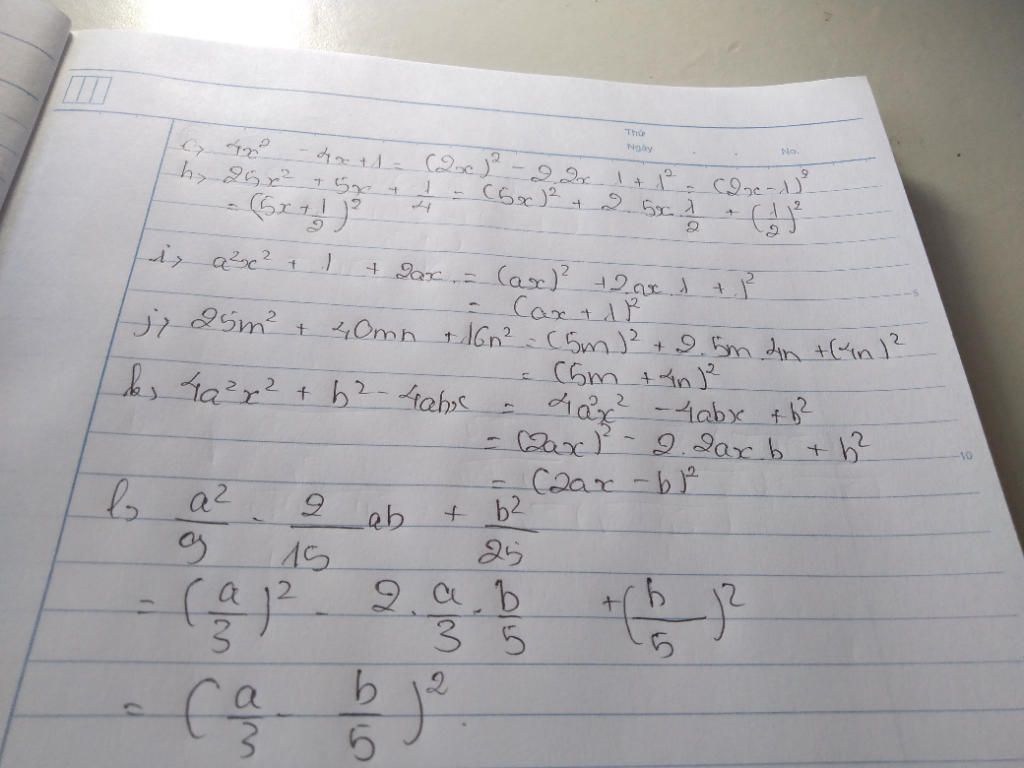 Thứ
Ngày . . No.
c, 4x² - 4x + 1 = (2x)² - 2.2x.1 + 1² = (2x - 1)²
h, 25x² + 5x + 1/4 = (5x)² + 2.5x.1/2 + (1/2)²
= (5x + 1/2)²
i, a²x² + 1 + 2ax = (ax)² + 2.ax.1 + 1²
= (ax + 1)²
j, 25m² + 40mn + 16n² = (5m)² + 2.5m.4n + (4n)²
= (5m + 4n)²
k, 4a²x² + b² - 4abx = 4a²x² - 4abx + b²
= (2ax)² - 2.2ax b + b²
= (2ax - b)²
l, a²/9 - 2/15 ab + b²/25
= (a/3)² - 2.a/3.b/5 + (b/5)²
= (a/3 - b/5)².
5
10